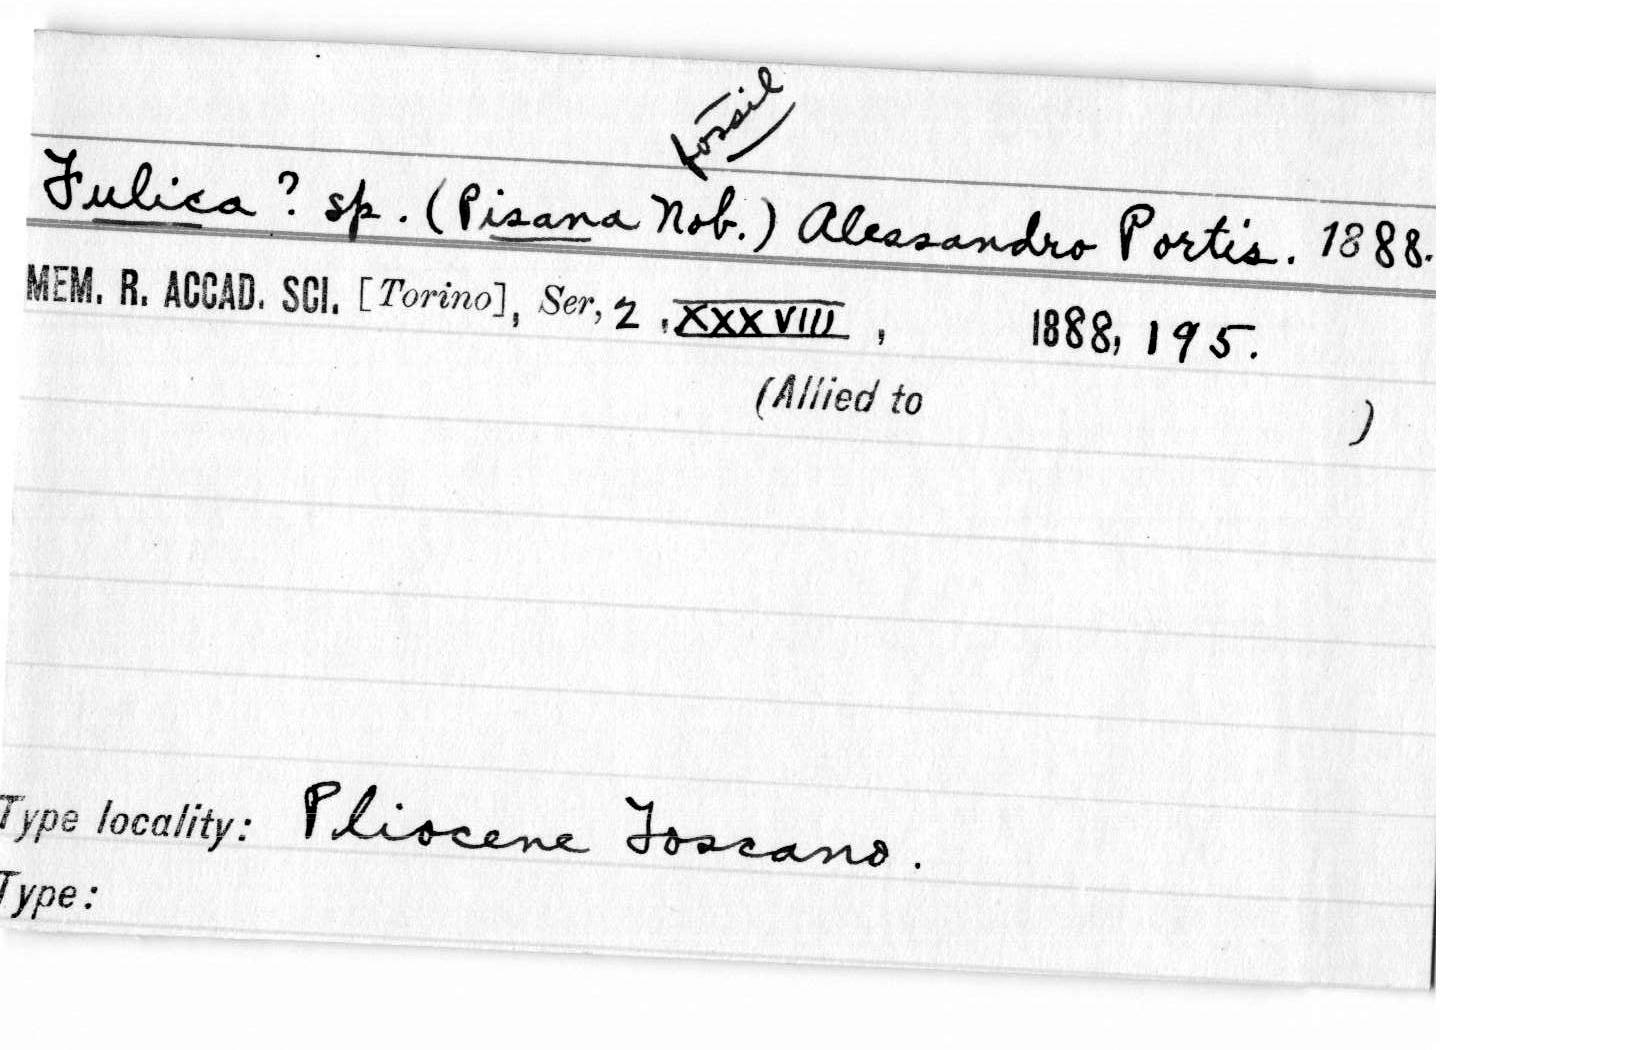 fossil
Fulica ? sp. (Pisana Nob.) Alessandro Portis. 1888.
MEM. R. ACCAD. SCI. [Torino], Ser, 2, XXXVIII, 1888, 195.
(Allied to )
Type locality: Pliocene Toscano.
Type: